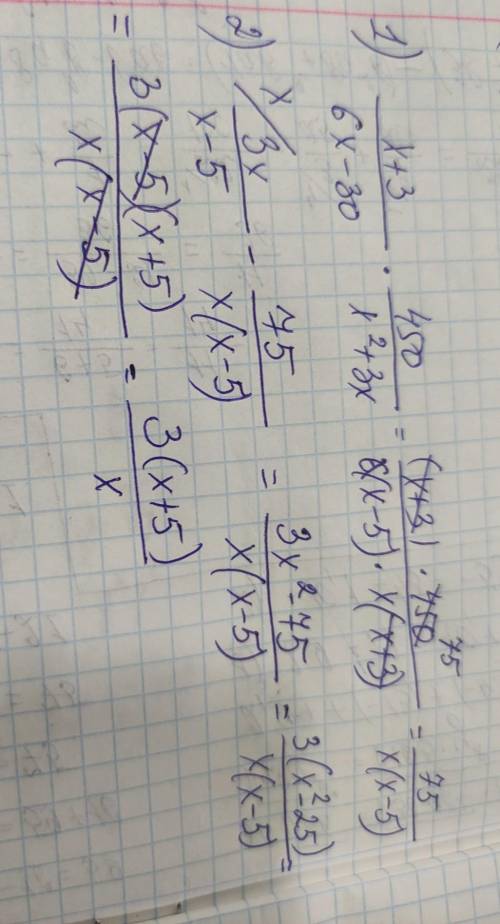 1) (x+3)/(6x-30) · 450/(x²+3x) = ((x+3) · 450 75)/(6(x-5) · x(x+3)) = 75/(x(x-5))
2) x/ 3x/(x-5) - 75/(x(x-5)) = (3x²-75)/(x(x-5)) = 3(x²-25)/(x(x-5)) =
= 3(x-5)(x+5)/(x(x-5)) = 3(x+5)/x